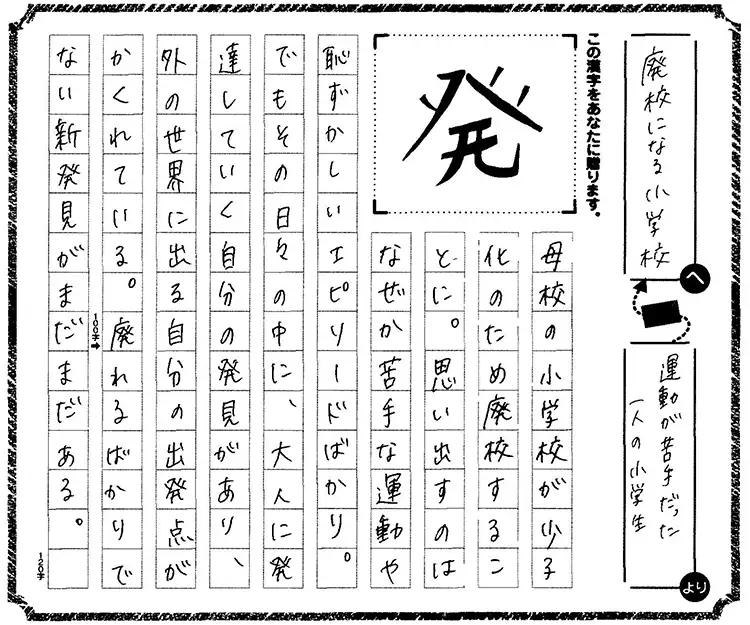 廃校になる小学校
へ
運動が苦手だった
一人の小学生
より
この漢字をあなたに贈ります。
発
母校の小学校が少子
化のため廃校するこ
とに。思い出すのは
なぜか苦手な運動や
恥ずかしいエピソードばかり。
でもその日々の中に、大人に発
達していく自分の発見があり、
外の世界に出る自分の出発点が
かくれている。廃れるばかりで
100字
ない新発見がまだまだある。
120字